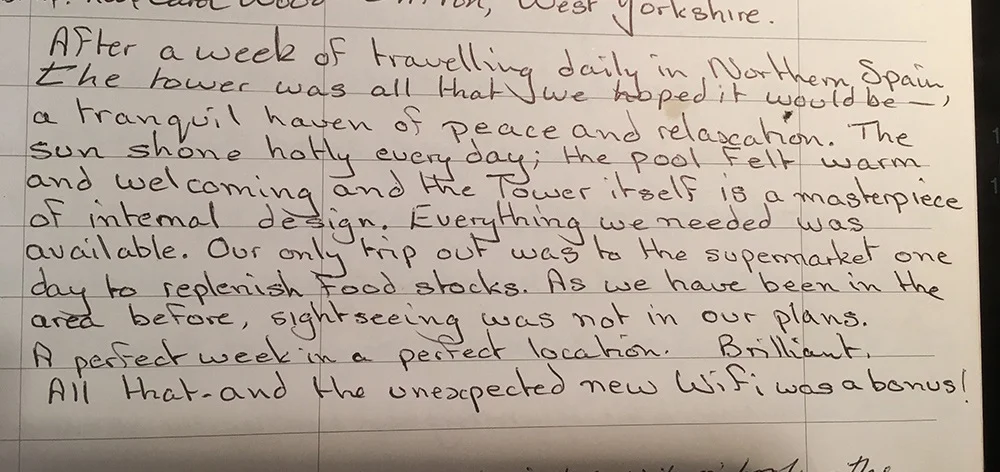 West Yorkshire.
After a week of travelling daily in Northern Spain
the tower was all that we hoped it would be —,
a tranquil haven of peace and relaxation. The
sun shone hotly every day; the pool felt warm
and welcoming and the Tower itself is a masterpiece
of internal design. Everything we needed was
available. Our only trip out was to the supermarket one
day to replenish food stocks. As we have been in the
area before, sightseeing was not in our plans.
A perfect week in a perfect location. Brilliant.
All that - and the unexpected new WiFi was a bonus!
the